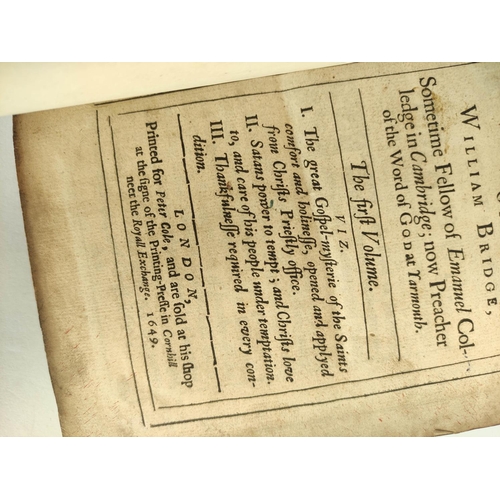 WILLIAM BRIDGE,
Sometime Fellow of Emanuel Col-
ledge in Cambridge; now Preacher
of the Word of GOD at Yarmouth.
The firſt Volume.
VIZ.
I. The great Goſpel-myſterie of the Saints
comfort and holineſſe, opened and applyed
from Chriſts Prieſtly office.
II. Satans power to tempt; and Chriſts love
to, and care of his people under temptation.
III. Thankfulneſſe required in every con-
dition.
LONDON,
Printed for Peter Cole, and are ſold at his ſhop
at the ſigne of the Printing-Preſſe in Cornhill
neer the Royall Exchange. 1649.